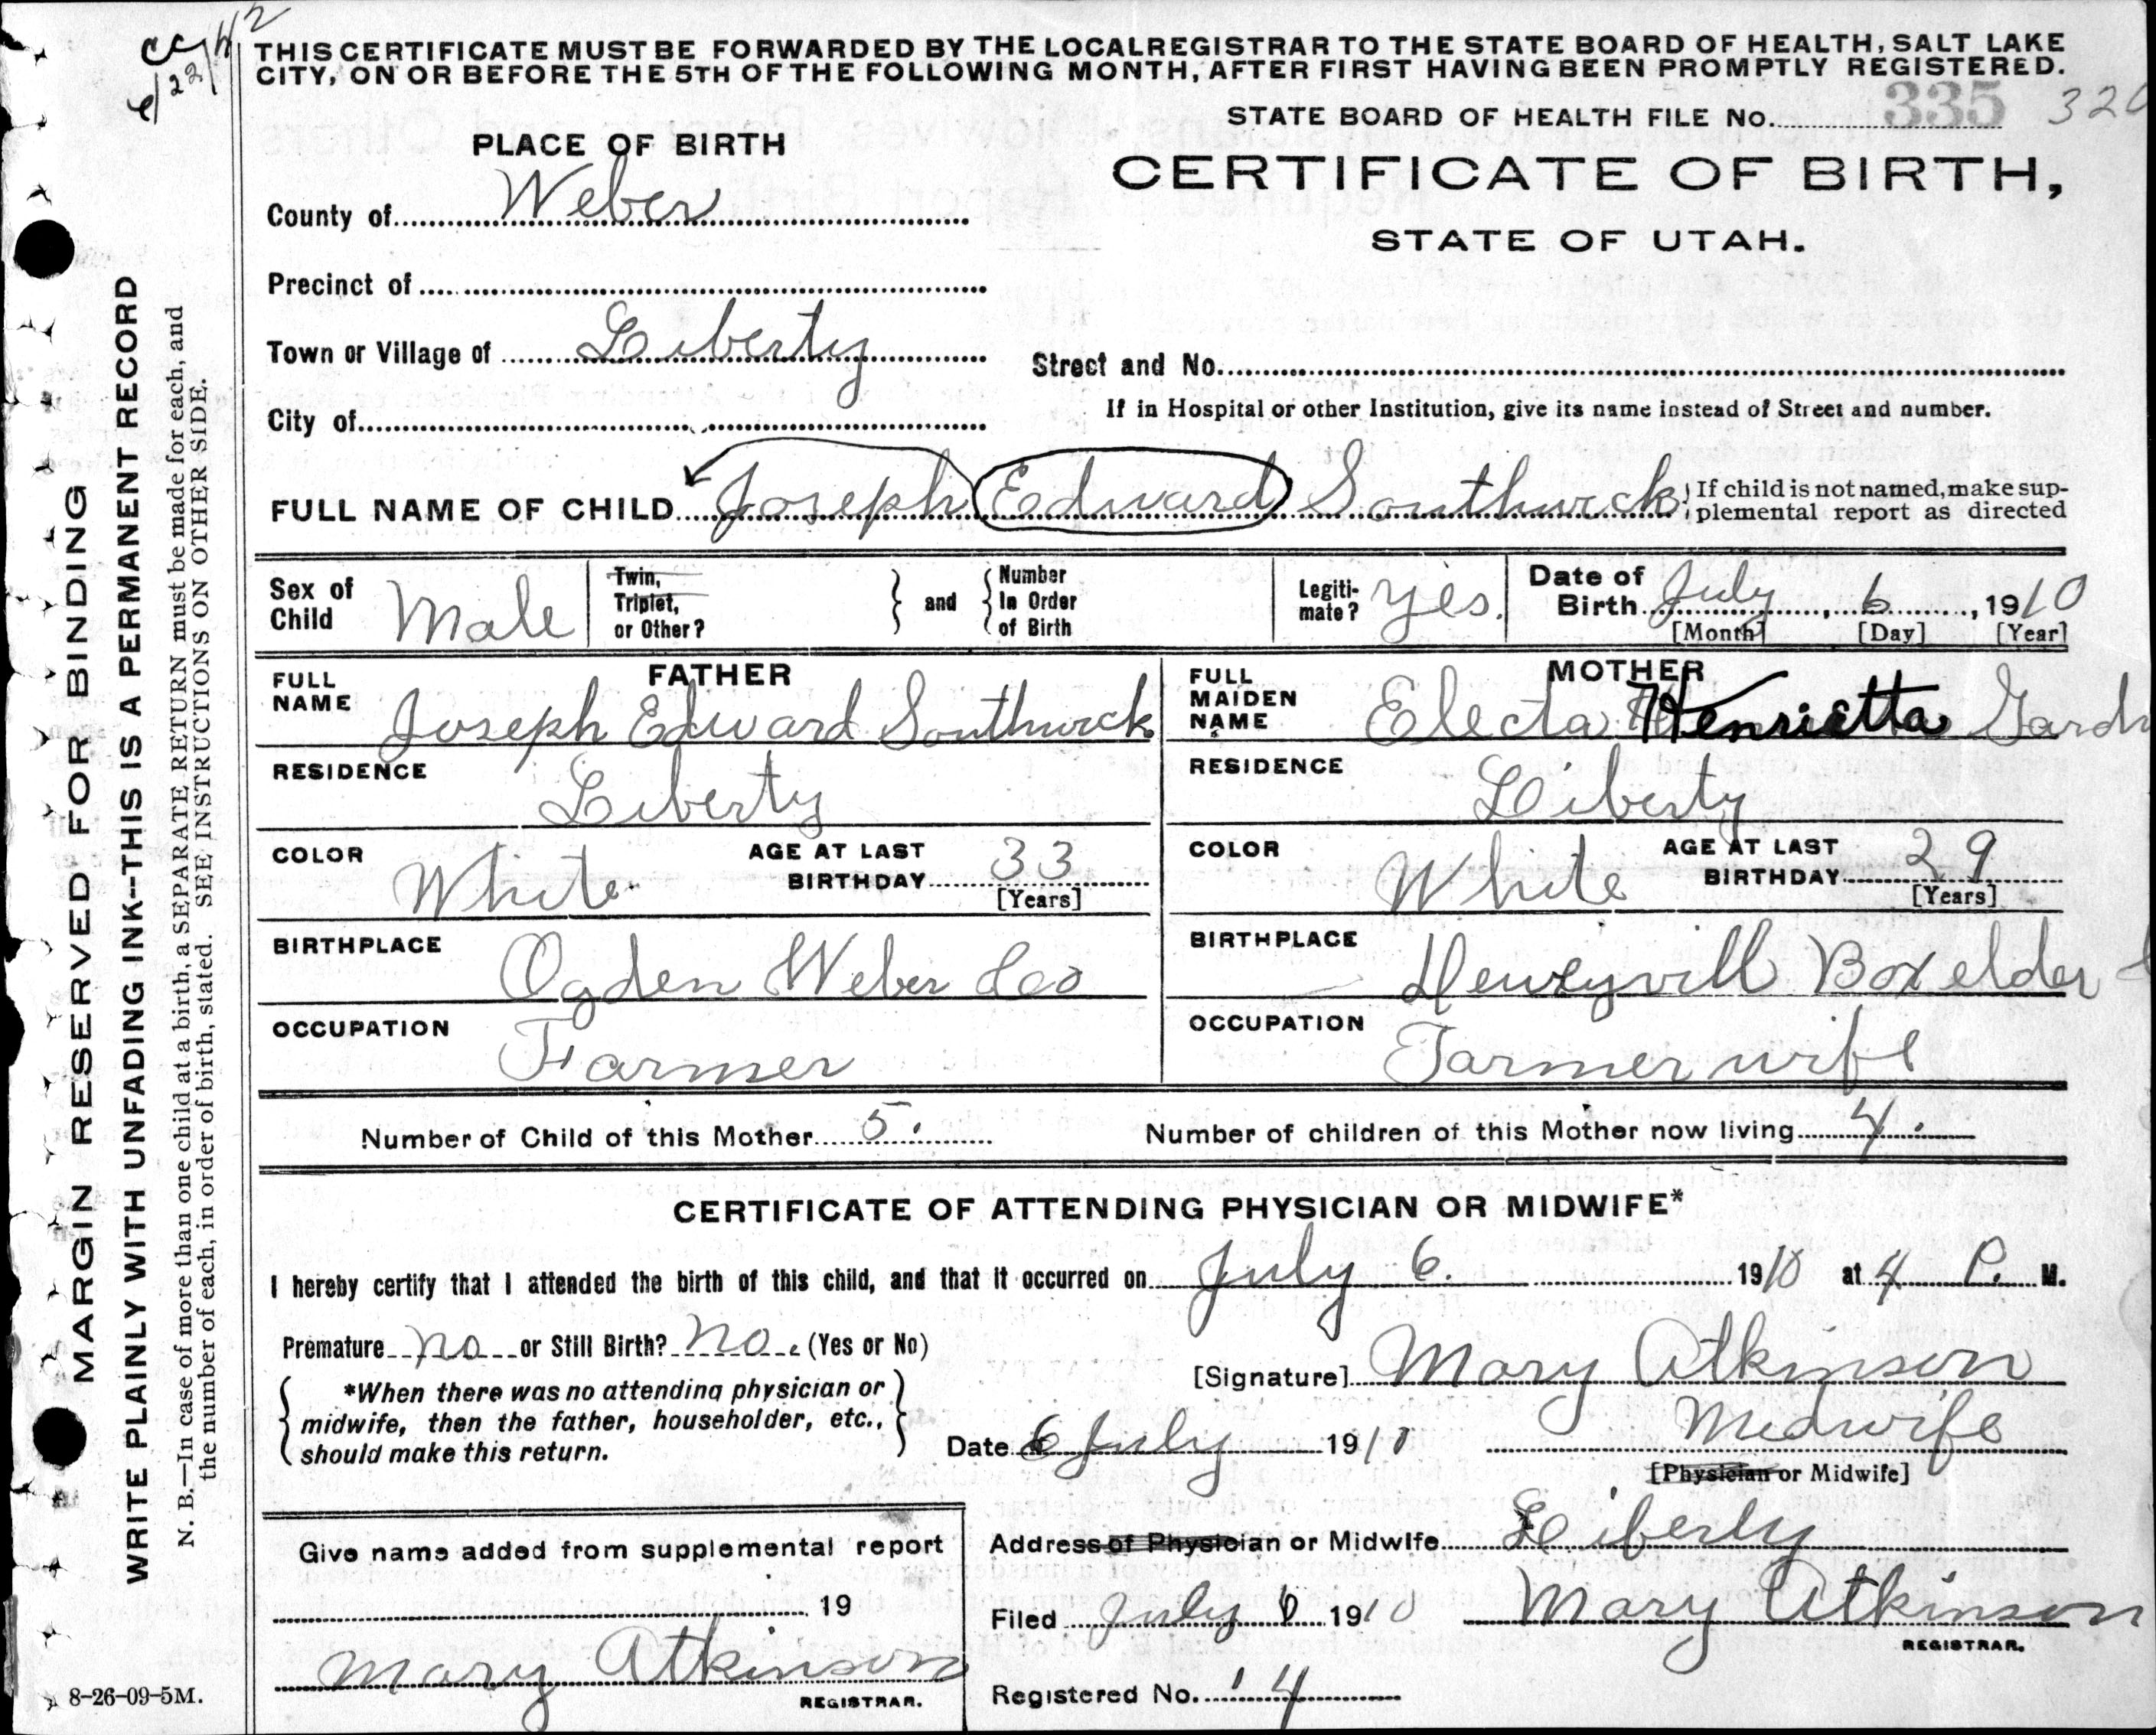 cc
6/22/42
THIS CERTIFICATE MUST BE FORWARDED BY THE LOCAL REGISTRAR TO THE STATE BOARD OF HEALTH, SALT LAKE
CITY, ON OR BEFORE THE 5TH OF THE FOLLOWING MONTH, AFTER FIRST HAVING BEEN PROMPTLY REGISTERED.
STATE BOARD OF HEALTH FILE No. 335 320
PLACE OF BIRTH
CERTIFICATE OF BIRTH,
STATE OF UTAH.
County of Weber
Precinct of
Town or Village of Liberty
Street and No.
City of
If in Hospital or other Institution, give its name instead of Street and number.
FULL NAME OF CHILD Joseph Edward Southwick { If child is not named, make sup-
plemental report as directed
Sex of Child Male
Twin, Triplet, or Other? } and { Number In Order of Birth
Legiti-mate? yes.
Date of Birth July, 6, 1910
[Month] [Day] [Year]
FATHER
FULL NAME Joseph Edward Southwick
RESIDENCE Liberty
COLOR White AGE AT LAST BIRTHDAY 33
[Years]
BIRTHPLACE Ogden Weber Co
OCCUPATION Farmer
MOTHER
FULL MAIDEN NAME Electa Henrietta Gardn
RESIDENCE Liberty
COLOR White AGE AT LAST BIRTHDAY 29
[Years]
BIRTHPLACE Boxelder
OCCUPATION Farmer wife
Number of Child of this Mother 5.
Number of children of this Mother now living 4.
CERTIFICATE OF ATTENDING PHYSICIAN OR MIDWIFE*
I hereby certify that I attended the birth of this child, and that it occurred on July 6. 1910 at 4 P. M.
Premature no or Still Birth? no. (Yes or No)
[Signature] Mary Atkinson
{ *When there was no attending physician or
midwife, then the father, householder, etc.,
should make this return. }
Date 6 July 1910 Midwife
[Physician or Midwife]
Address of Physician or Midwife Liberty
Filed July 6 1910 Mary Atkinson
REGISTRAR.
Registered No. 4
Give name added from supplemental report
19
Mary Atkinson
REGISTRAR.
MARGIN RESERVED FOR BINDING
WRITE PLAINLY WITH UNFADING INK--THIS IS A PERMANENT RECORD
N. B.—In case of more than one child at a birth, a SEPARATE RETURN must be made for each, and
the number of each, in order of birth, stated. SEE INSTRUCTIONS ON OTHER SIDE.
8-26-09-5M.